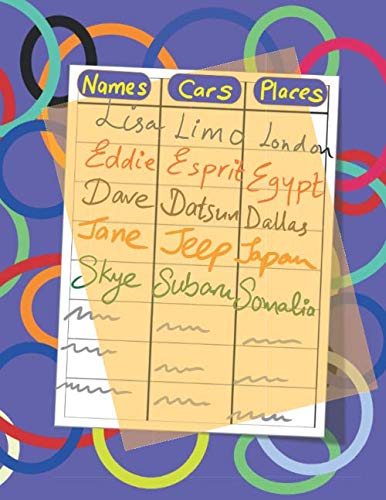 Names Cars Places
Lisa Limo London
Eddie Esprit Egypt
Dave Datsun Dallas
Jane Jeep Japan
Skye Subaru Somalia